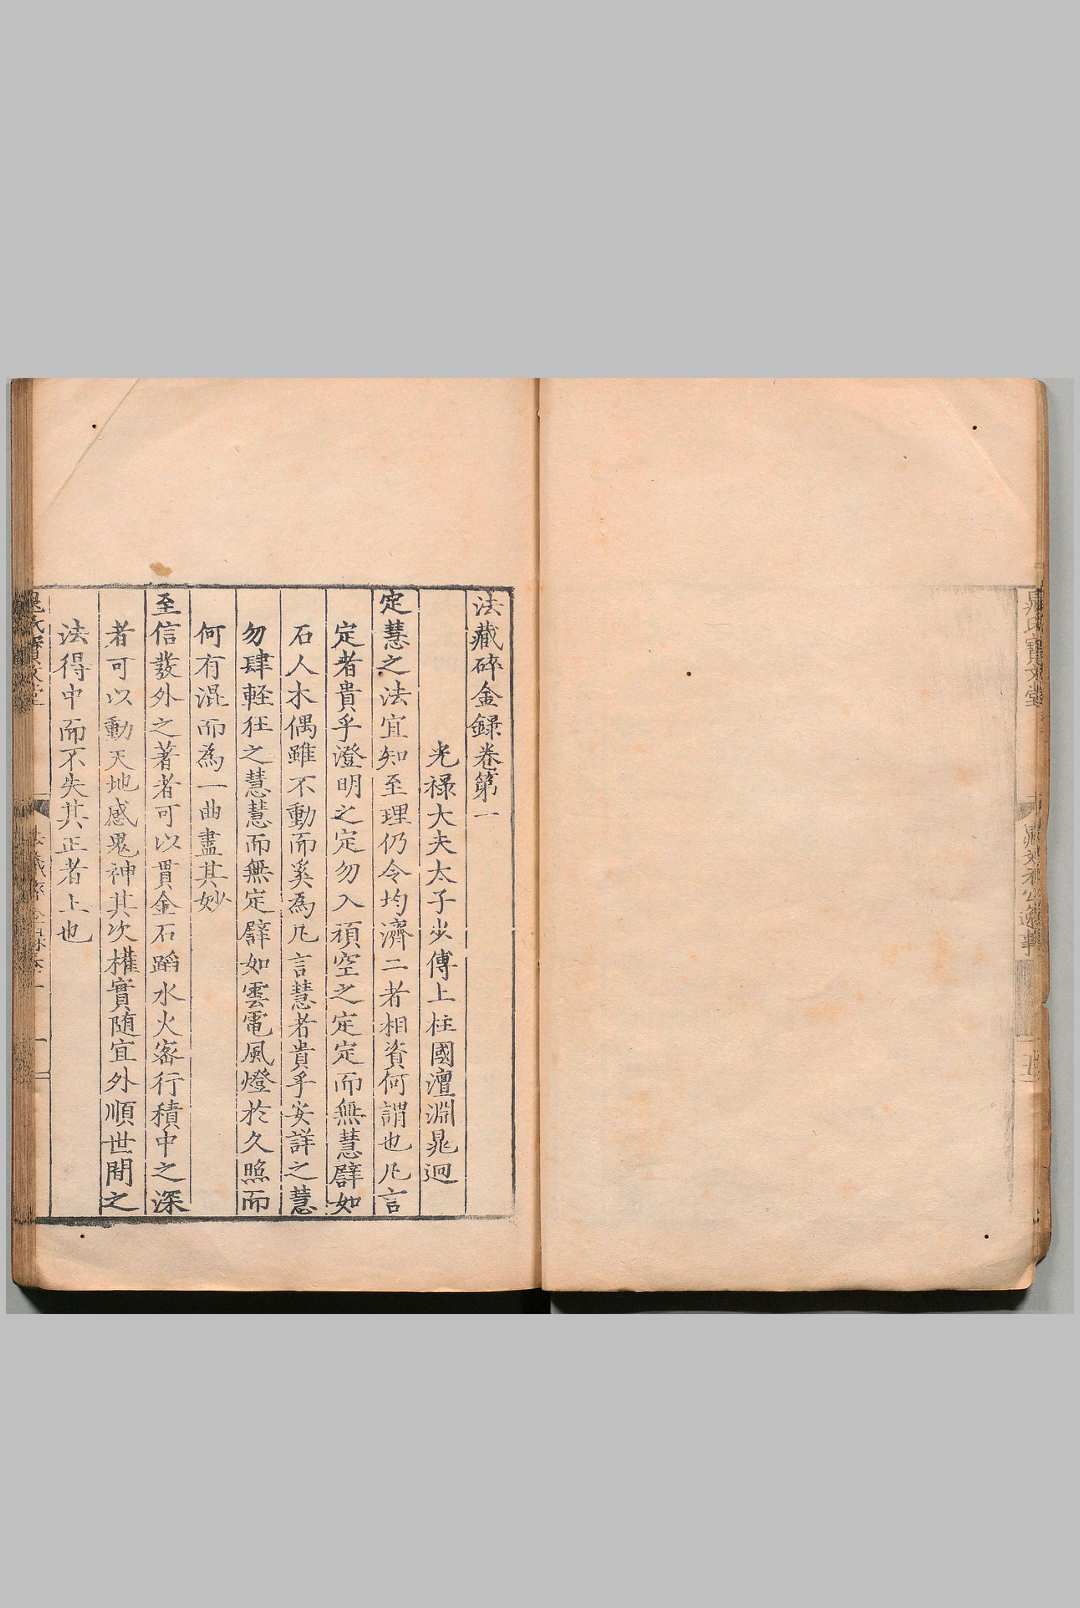 法藏碎金録卷第一
光禄大夫太子少傅上柱國澶淵晁迥
定慧之法宜知至理仍令均濟二者相資何謂也凡言
定者貴乎澄明之定勿入頑空之定定而無慧譬如
石人木偶雖不動而奚為凡言慧者貴乎安詳之慧
勿肆輕狂之慧慧而無定譬如雲電風燈於久照而
何有混而為一曲盡其妙
至信發外之著者可以貫金石蹈水火密行積中之深
者可以動天地感鬼神其次權實隨宜外順世間之
法得中而不失其正者上也
晁氏寶文堂